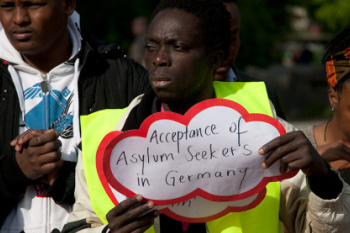 Acceptance of
Asylum Seeker's
in Germany